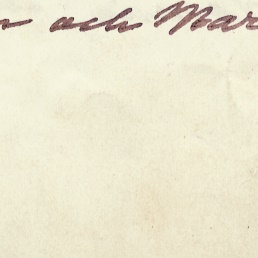 och Mar